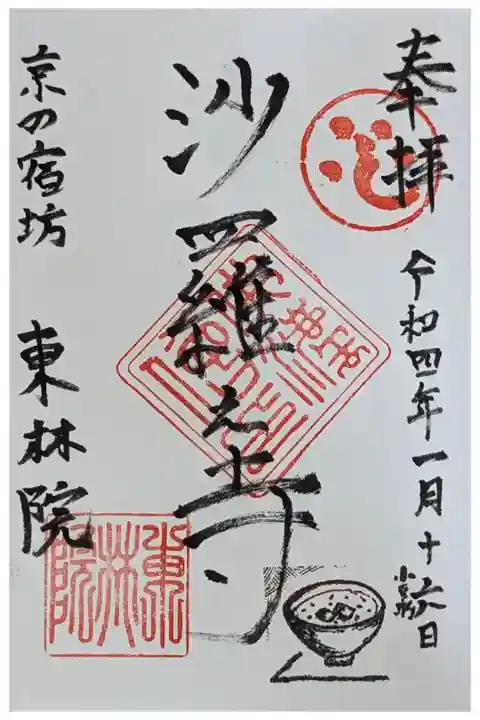 奉拝
令和四年一月十六日
小豆粥
沙羅之寺
京の宿坊 東林院
東林院